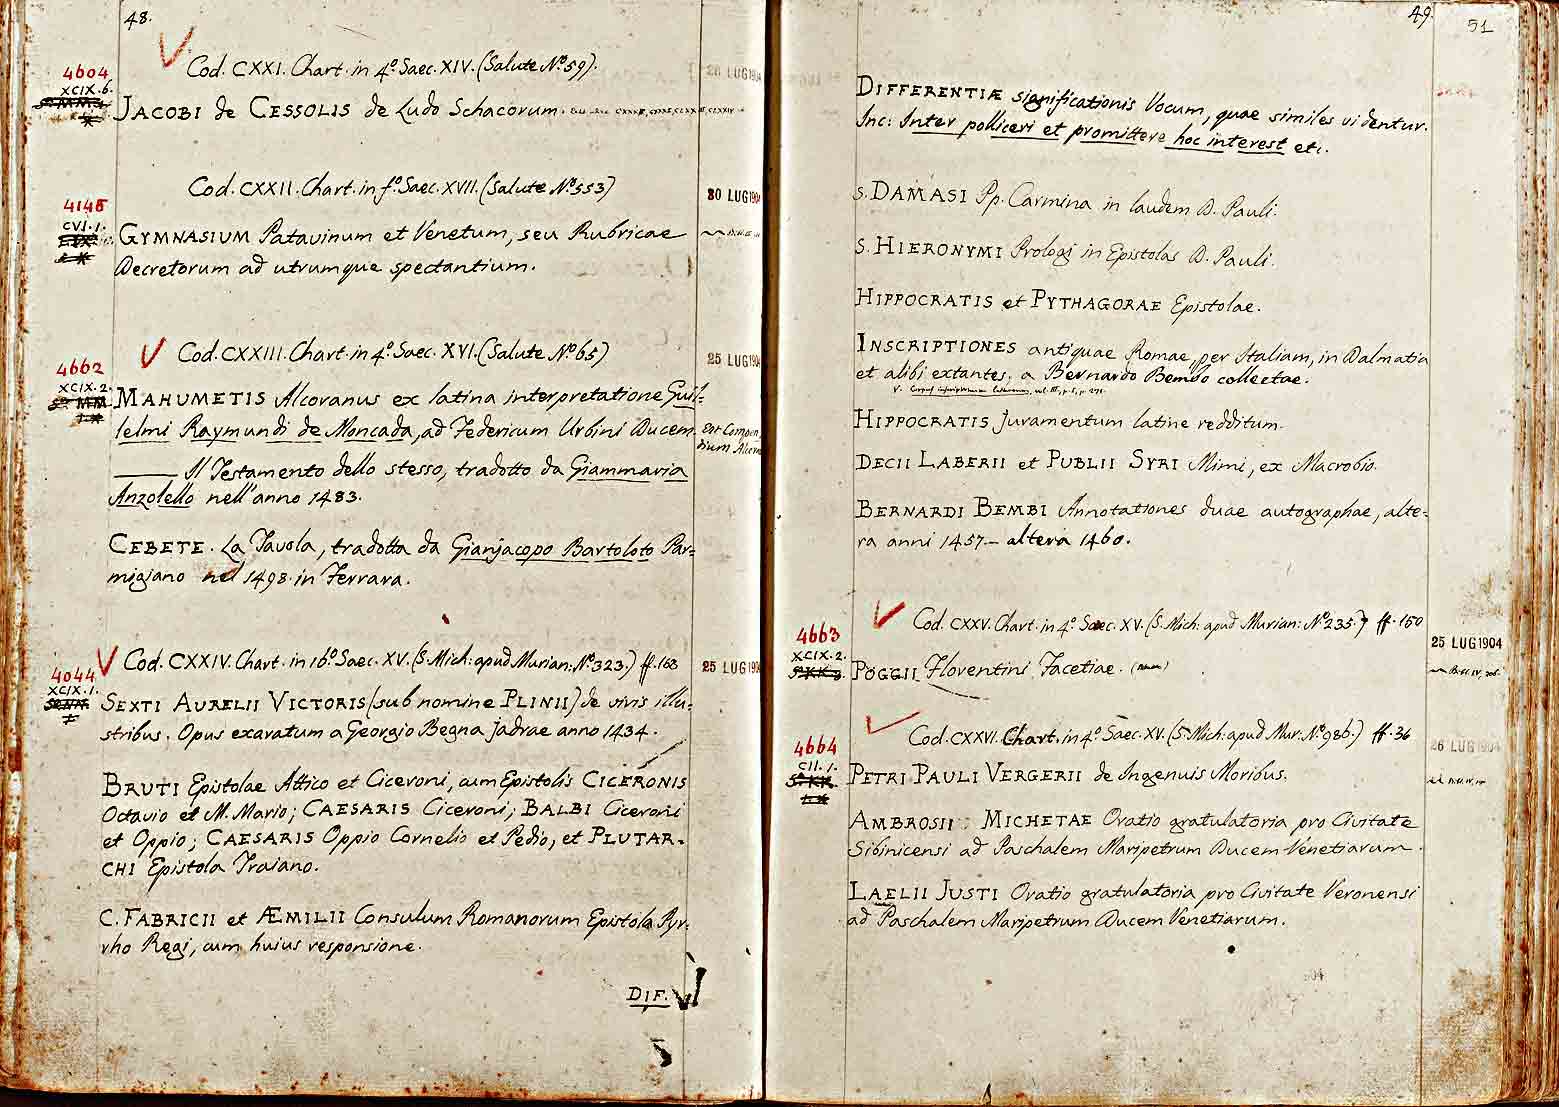 48.
Cod. CXXI. Chart. in 4º. Saec. XIV. (Salute Nº. 59).
4604
XCIX. 6.
28 LUG 1904
JACOBI de CESSOLIS de Ludo Schacorum.
Cod. CXXII. Chart. in fº. Saec. XVII. (Salute Nº. 553)
30 LUG 1904
4146
CVI. 1.
GYMNASIUM Patavinum et Venetum, seu Rubricae
Decretorum ad utrumque spectantium.
Cod. CXXIII. Chart. in 4º. Saec. XVI. (Salute Nº. 65)
25 LUG 1904
4662
XCIX. 2.
MAHUMETIS Alcoranus ex latina interpretatione Guil=
lelmi Raymundi de Moncada, ad Federicum Urbini Ducem.
Est Compen
dium Alcora
—— Il Testamento dello stesso, tradotto da Giammaria
Anzolello nell'anno 1483.
CEBETE. La Tavola, tradotta da Gianjacopo Bartoloto Par=
migiano nel 1498. in Ferrara.
Cod. CXXIV. Chart. in 16º. Saec. XV. (S. Mich: apud Murian: Nº. 323.) ff. 168
25 LUG 1904
4044
XCIX. 1.
SEXTI AURELII VICTORIS (sub nomine PLINII) de viris illu=
stribus. Opus exaratum a Georgio Begna Jadrae anno 1434.
BRUTI Epistolae Attico et Ciceroni, cum Epistolis CICERONIS
Octavio et M. Mario; CAESARIS Ciceroni; BALBI Ciceroni
et Oppio; CAESARIS Oppio Cornelio et Pedio, et PLUTAR=
CHI Epistola Traiano.
C. FABRICII et ÆMILII Consulum Romanorum Epistola Pyr=
rho Regi, cum huius responsione.
DIF.
49.
51
DIFFERENTIÆ significationis Vocum, quae similes videntur.
Inc: Inter polliceri et promittere hoc interest etc.
S. DAMASI Pp. Carmina in laudem D. Pauli.
S. HIERONYMI Prologi in Epistolas D. Pauli.
HIPPOCRATIS et PYTHAGORAE Epistolae.
INSCRIPTIONES antiquae Romae, per Italiam, in Dalmatia
et alibi extantes, a Bernardo Bembo collectae.
V. Corpus inscriptionum Latinarum, vol. III, p. 1, p. 271.
HIPPOCRATIS Juramentum latine redditum.
DECII LABERII et PUBLII SYRI Mimi, ex Macrobio.
BERNARDI BEMBI Annotationes duae autographae, alte=
ra anni 1457 — altera 1460.
Cod. CXXV. Chart. in 4º. Saec. XV. (S. Mich: apud Murian: Nº. 235.) ff. 150
25 LUG 1904
4663
XCIX. 2.
POGGII Florentini Facetiae.
Cod. CXXVI. Chart. in 4º. Saec. XV. (S. Mich: apud Mur: Nº. 986.) ff. 36
26 LUG 1904
4664
CII. 1.
PETRI PAULI VERGERII de Ingenuis Moribus.
AMBROSII MICHETAE Oratio gratulatoria pro Civitate
Sibinicensi ad Paschalem Maripetrum Ducem Venetiarum.
LAELII JUSTI Oratio gratulatoria pro Civitate Veronensi
ad Paschalem Maripetrum Ducem Venetiarum.